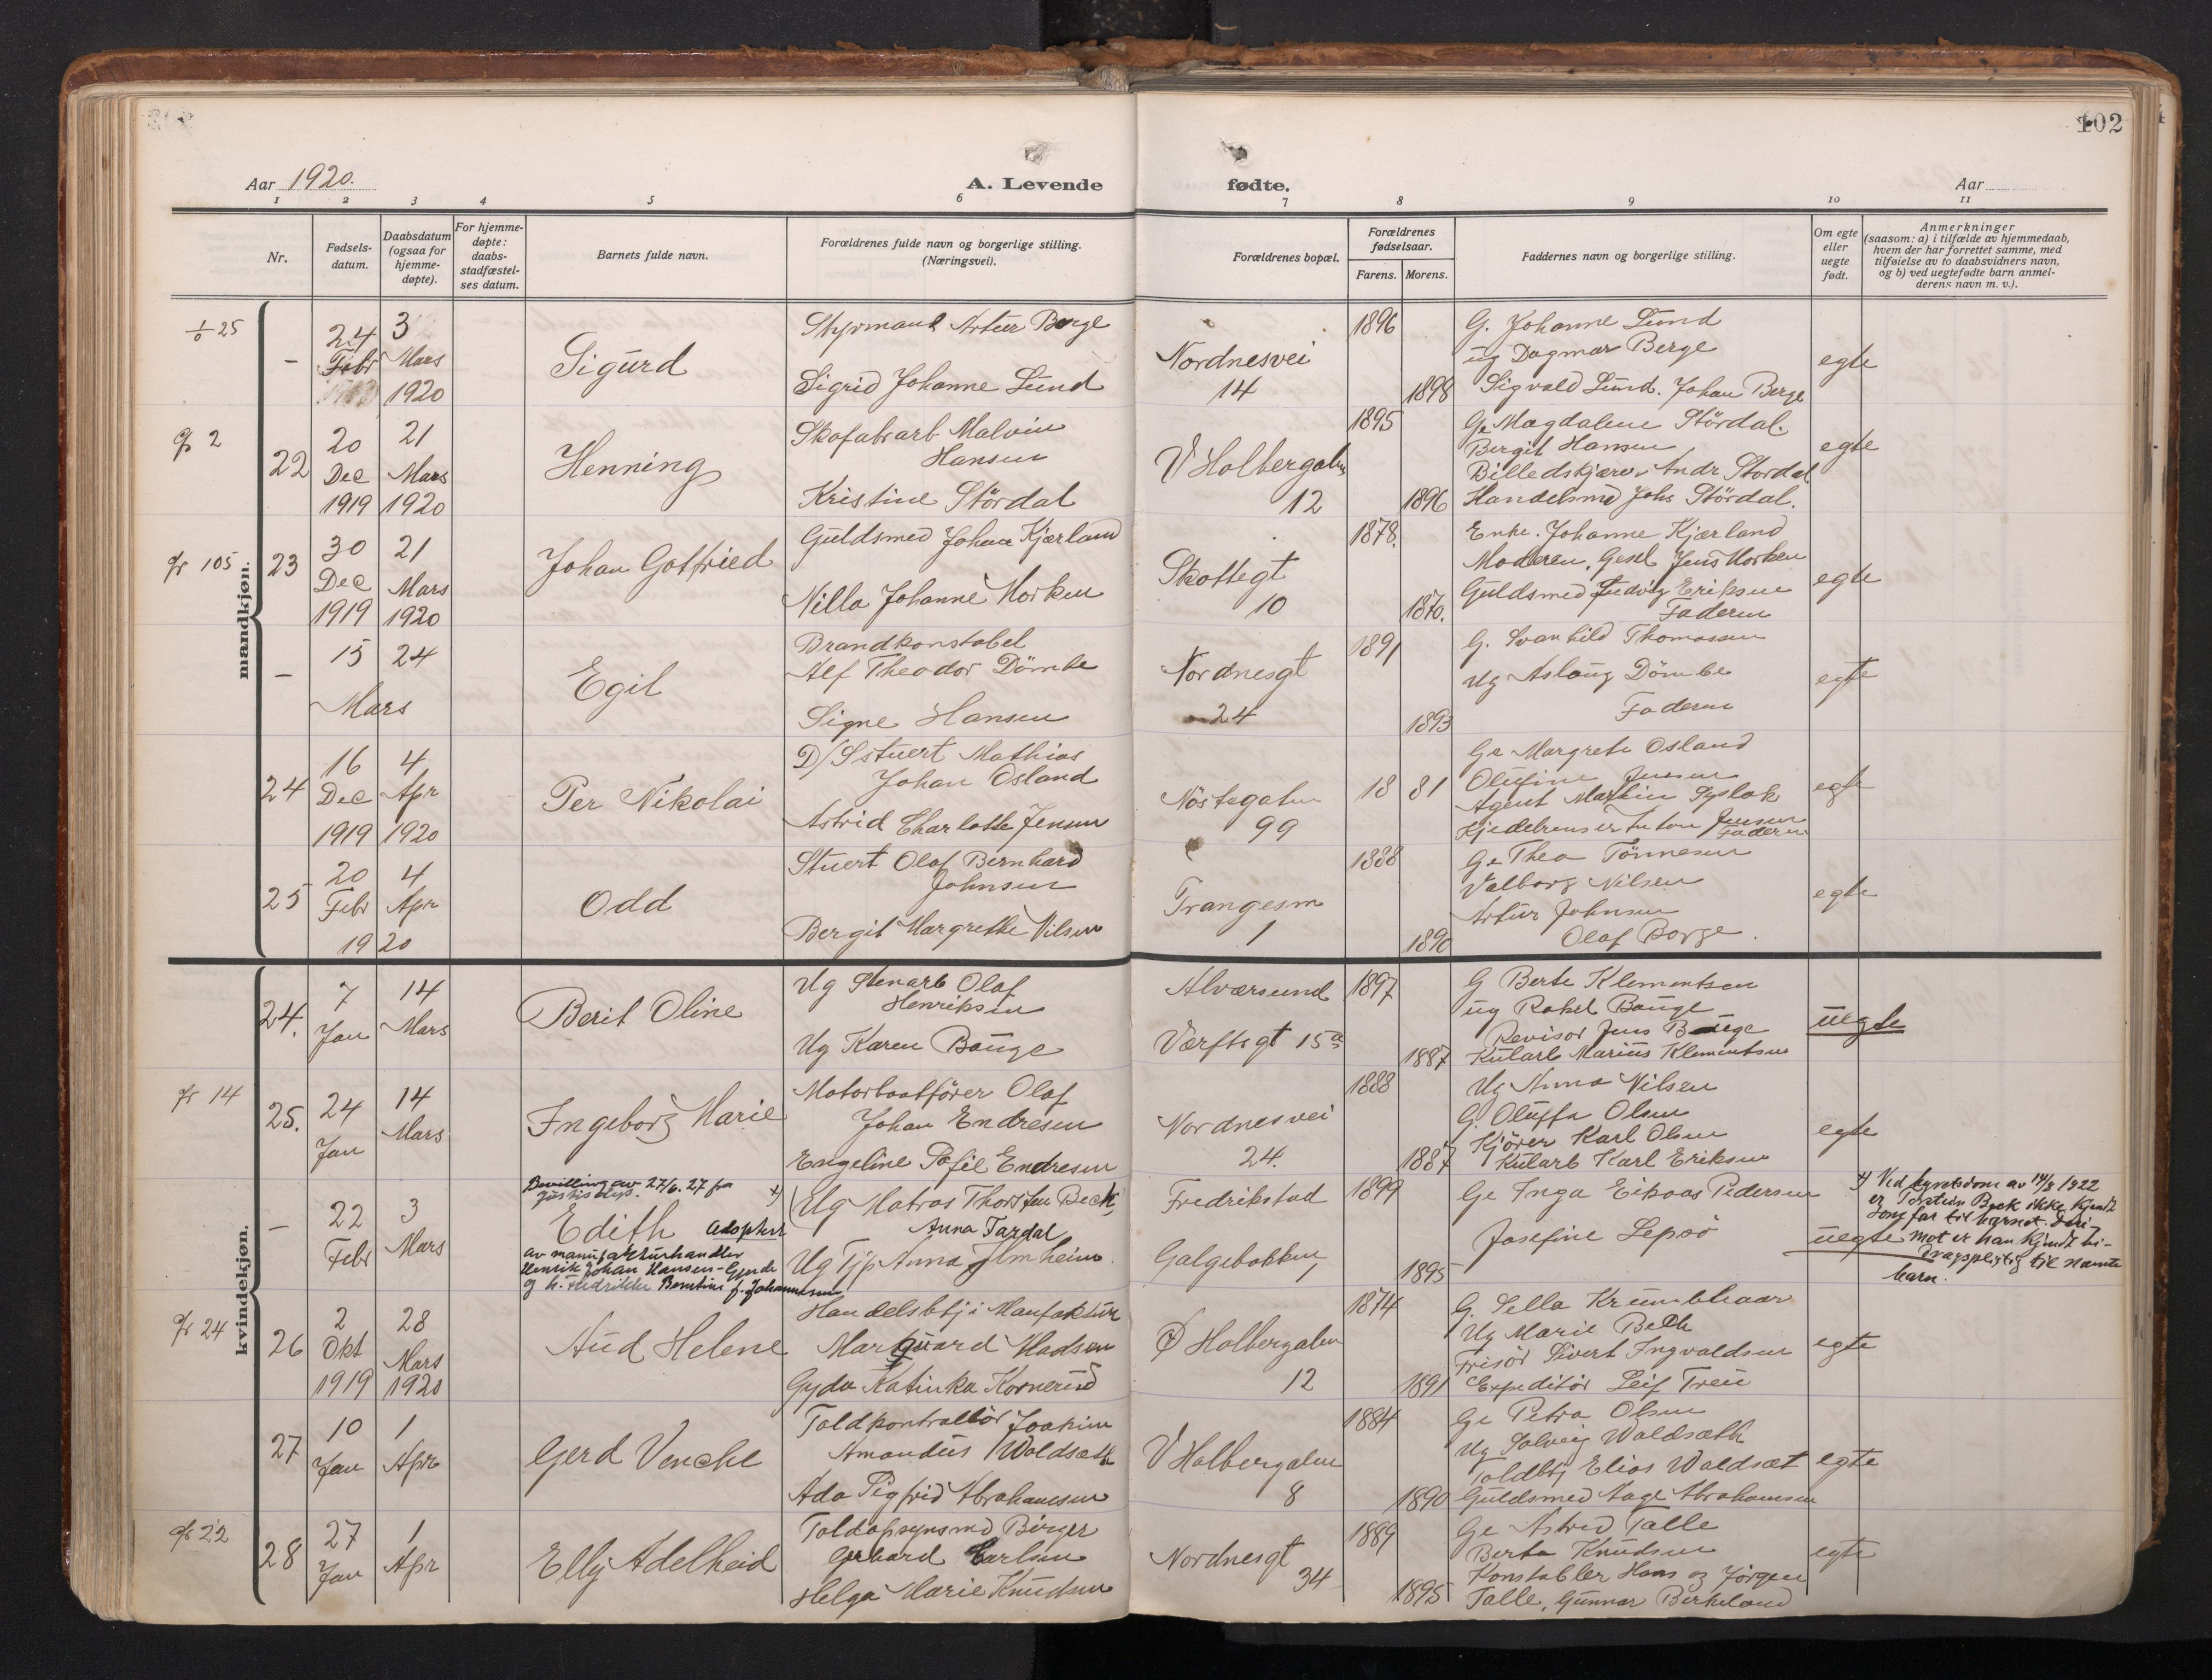 102
Aar 1920.
A. Levende fødte.
Aar
1 2 3 4 5 6 7 8 9 10 11
Nr.
Fødsels-
datum.
Daabsdatum
(ogsaa for
hjemme-
døpte).
For hjemme-
døpte:
daabs-
stadfæstel-
ses datum.
Barnets fulde navn.
Forældrenes fulde navn og borgerlige stilling.
(Næringsvei).
Forældrenes bopæl.
Forældrenes
fødselsaar.
Farens. Morens.
Faddernes navn og borgerlige stilling.
Om egte
eller
uegte
født.
Anmerkninger
(saasom: a) i tilfælde av hjemmedaab,
hvem der har forrettet samme, med
tilføielse av to daabsvidners navn,
og b) ved uegtefødte barn anmel-
derens navn m. v.).
mandkjøn.
25
–
24 3
Febr Mars
1920
Sigurd
Styrmand Artur Berge
Sigrid Johanne Lund
Nordnesvei
14
1896
1898
G. Johanne Lund
ug Dagmar Berge
Sigvald Lund. Johan Berge
egte
2
22
20 21
Dec Mars
1919 1920
Henning
Skofabrarb Malvin
Hansen
Kristine Stördal
V Holbergalm
12
1895
1896
Ge Magdalene Stördal.
Bergit Hansen
Billedskjærer Andr Stordal
Handelsmd Johs Stördal.
egte
105
23
30 21
Dec Mars
1919 1920
Johan Gotfried
Guldsmed Johan Kjærland
Nilla Johanne Morken
Skottegt
10
1878.
1870.
Enke. Johanne Kjærland
Moderen, Gesel Jens Morken
Guldsmed Ludvig Eriksen
Faderen
egte
–
15 24
Mars
Egil
Brandkonstabel
Alf Theodor Dömbe
Signe Hansen
Nordnesgt
24
1891
1893
G. Svanhild Thomassen
Ug Aslaug Dömbe
Faderen
egte
24
16 4
Dec Apr
1919 1920
Per Nikolai
D/S stuert Mathias
Johan Osland
Astrid Charlotte Jensen
Nöstegaten
99
18 81
Ge Margrete Osland
Olufine Jensen
Agent Martin Syslak
Kjedelrenser Anton Jensen
Faderen
egte
25
20 4
Febr Apr
1920
Odd
Stuert Olaf Bernhard
Johnsen
Bergit Margrethe Nilsen
Trangesm
1
1888
1890
Ge Thea Tönnesen
Valborg Nilsen
Artur Johnsen
Olaf Borge.
egte
kvindekjøn.
24.
7 14
Jan Mars
Berit Oline
Ug Stenarb Olaf
Henriksen
Ug Karen Bauge
Alværsund
Værftsgt 15a
1897
1887
G Berte Klementsen
ug Rakel Bauge
Revisor Jens Bauge
Kularb Marius Klementsen
uegte
14
25.
24 14
Jan Mars
Ingeborg Marie
Motorbaatförer Olaf
Johan Endresen
Engeline Pofie Endresen
Nordnesvei
24.
1888
1887
Ug Anna Nilsen
G. Oluffa Olsen
Kjörer Karl Olsen
Kularb Karl Eriksen
egte
–
22 3
Febr Mars
Bevilling av 27/6. 27 fra
Justisdep.
Edith adoptert
av manufakturhandler
Henrik Johan Hansen-Gjerde
og h. Fredrikke Berntine f. Johannesen
x) Ug Matros Thorsten Beck,
Anna Fardal
Ug Tjp Anna Jlmheim
Fredrikstad
Galgebakken
1
1899
1895
Ge Inga Eikaas Pedersen
Josefine Lepsö
uegte
x) Ved Byretsdom av 14/8 1922
er Torstein Beck ikke kjendt
som far til barnet. Deri-
mot er han kjendt bi-
dragspligtig til nævnte
barn.
24
26
2 28
Okt Mars
1919 1920
Aud Helene
Handelsbtj i Manufaktur
Marquard Madsen
Gyda Katinka Kornerud
Ø Holbergalm
12
1874
1891
G. Sella Krumbhaar
Ug Marie Beck
Frisör Sivert Ingvaldsen
Expeditör Leif Treu
egte
27
10 1
Jan Apr
Gerd Vencke
Toldkontrollör Joakim
Amandus Waldsæth
Ada Sigfrid Abrahamsen
V Holbergalm
8
1884
1890
Ge Petra Olsen
Ug Solveig Waldsæth
Toldbtj Elias Waldsæt
Guldsmed Aage Abrahamsen
egte
22
28
27 1
Jan Apr
Elly Adelheid
Toldopsynsmd Birger
Gerhard Carlsen
Helga Marie Knudsen
Nordnesgt
34
1889
1895
Ge Astrid Talle
Berta Knudsen
Konstabler Hans og Jörgen
Talle, Gunnar Birkeland
egte